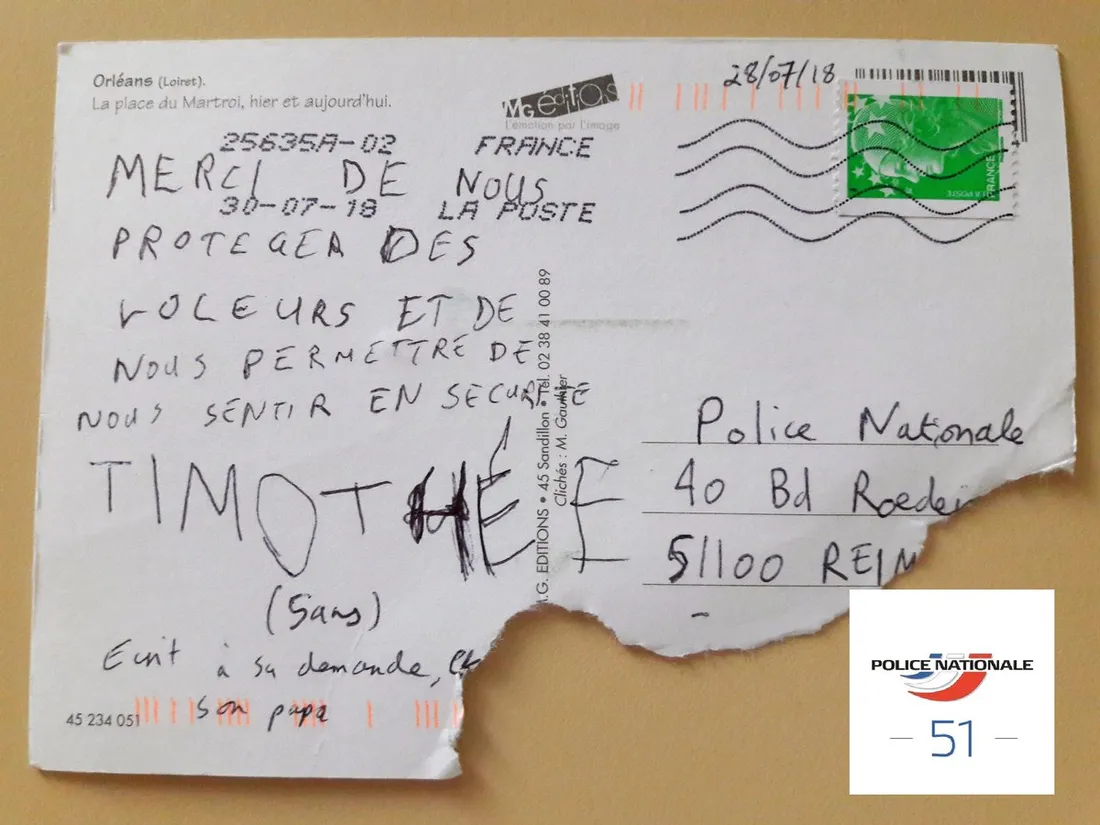 Orléans (Loiret).
La place du Martroi, hier et aujourd'hui.
MG éditions
l'émotion par l'image
28/07/18
25635A-02 FRANCE
30-07-18 LA POSTE
FRANCE
MERCI DE NOUS
PROTEGER DES
VOLEURS ET DE
NOUS PERMETTRE DE
NOUS SENTIR EN SECURITE
TIMOTHÉE
(5ans)
Ecrit à sa demande,
son papa
45 234 051
M.G. EDITIONS • 45 Sandillon • Tél. 02 38 41 00 89
Clichés : M. Gauthier
Police Nationale
40 Bd Roede
51100 REIM
POLICE NATIONALE
51